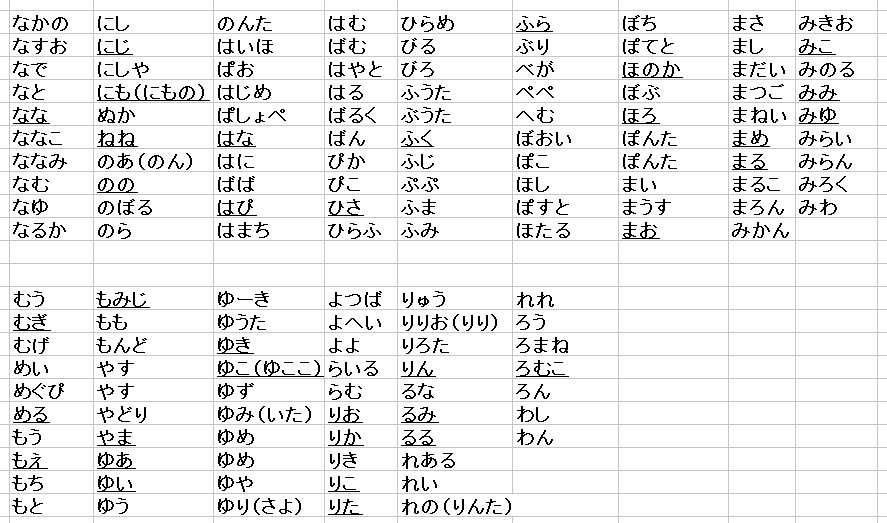 なかの にし のんた はむ ひらめ ふら ぼち まさ みきお
なすお にじ はいほ ばむ びる ぶり ぽてと まし みこ
なで にしや ぱお はやと びろ べが ほのか まだい みのる
なと にも(にもの) はじめ はる ふうた ぺぺ ぼぶ まつご みみ
なな ぬか ぱしょぺ ばるく ぶうた へむ ほろ まねい みゆ
ななこ ねね はな ばん ふく ぼおい ぽんた まめ みらい
ななみ のあ(のん) はに ぴか ふじ ぽこ ぽんた まる みらん
なむ のの ばば ぴこ ぷぷ ほし まい まるこ みろく
なゆ のぼる はぴ ひさ ふま ぽすと まうす まろん みわ
なるか のら はまち ひらふ ふみ ほたる まお みかん
むう もみじ ゆーき よつば りゅう れれ
むぎ もも ゆうた よへい りりお(りり) ろう
むげ もんど ゆき よよ りろた ろまね
めい やす ゆこ(ゆここ) らいる りん ろむこ
めぐぴ やす ゆず らむ るな ろん
める やどり ゆみ(いた) りお るみ わし
もう やま ゆめ りか るる わん
もえ ゆあ ゆめ りき れある
もち ゆい ゆや りこ れい
もと ゆう ゆり(さよ) りた れの(りんた)